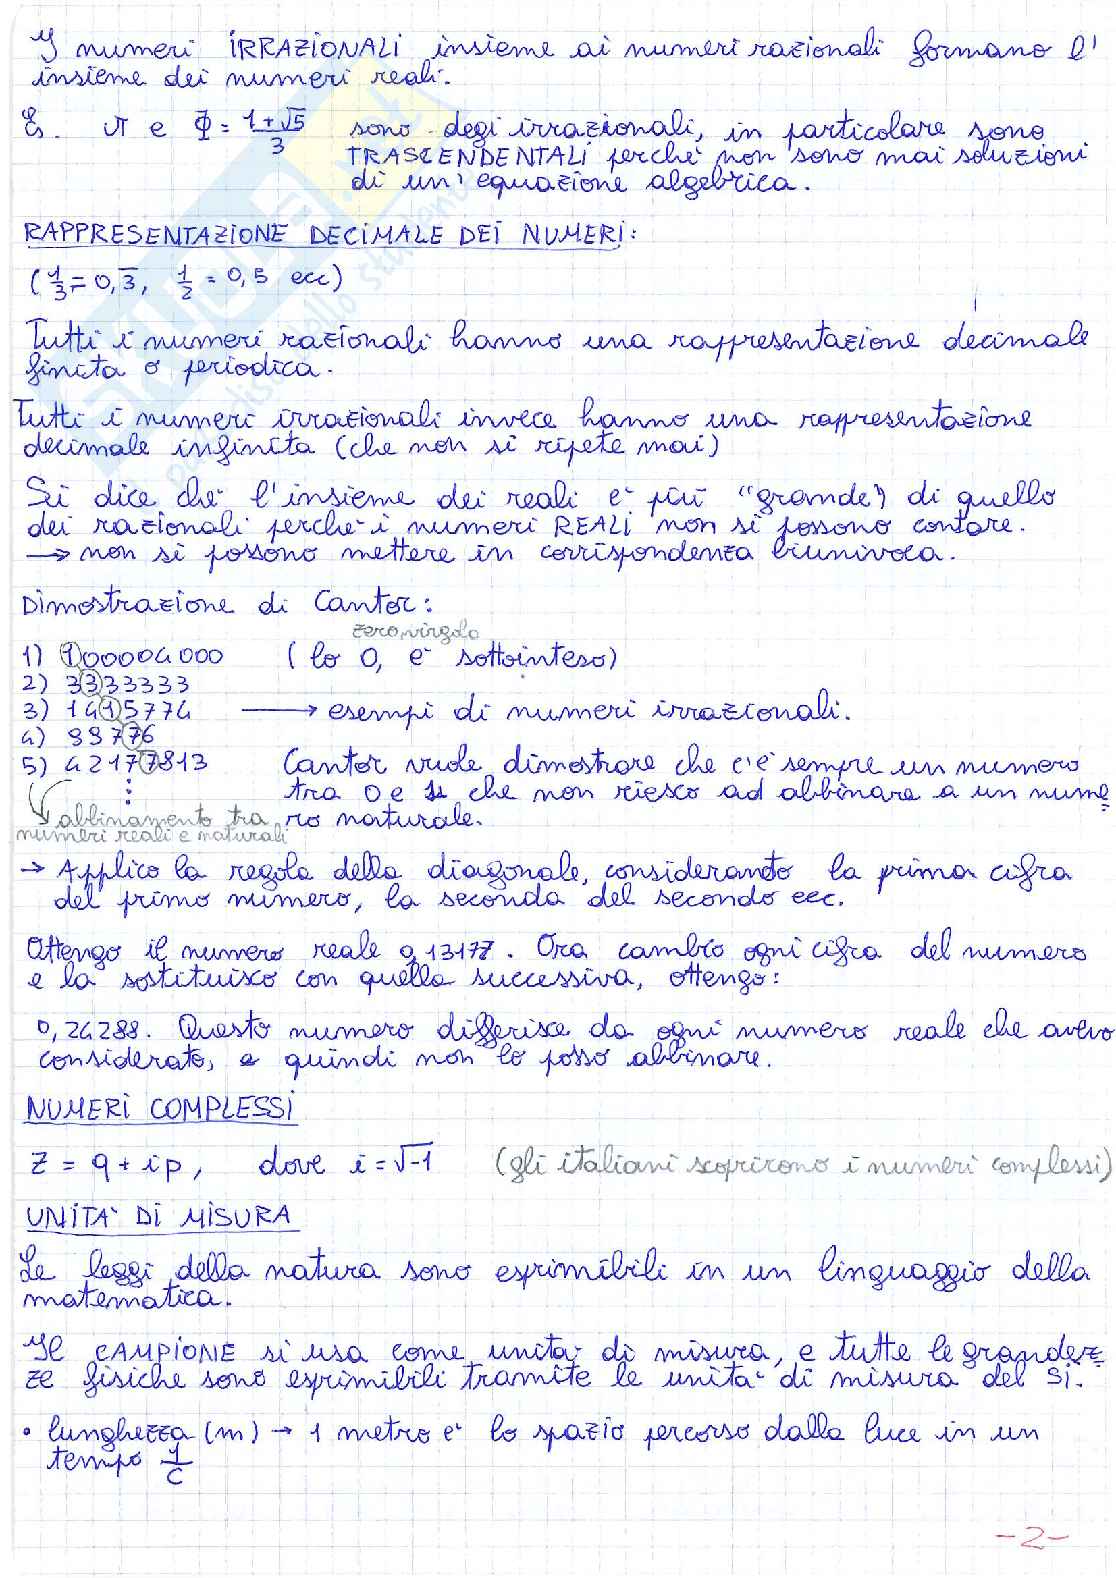 I numeri IRRAZIONALI insieme ai numeri razionali formano l'
insieme dei numeri reali.
Es. π e Φ = (1+√5)/3 sono degi irrazionali, in particolare sono
TRASCENDENTALI perché non sono mai soluzioni
di un' equazione algebrica.
RAPPRESENTAZIONE DECIMALE DEI NUMERI:
(1/3 = 0,3̅, 1/2 = 0,5 ecc)
Tutti i numeri razionali hanno una rappresentazione decimale
finita o periodica.
Tutti i numeri irrazionali invece hanno una rappresentazione
decimale infinita (che non si ripete mai)
Si dice che l'insieme dei reali è più "grande") di quello
dei razionali perché i numeri REALI non si possono contare.
→ non si possono mettere in corrispondenza biunivoca.
Dimostrazione di Cantor:
zero, virgola
1) 100004000 (lo 0, è sottointeso)
2) 3333333
3) 1415774 → esempi di numeri irrazionali.
4) 99776
5) 42177813 Cantor vuole dimostrare che c'è sempre un numero
tra 0 e 1 che non riesco ad abbinare a un nume
abbinamento tra ro naturale.
numeri reali e naturali
→ Applico la regola della diagonale, considerando la prima cifra
del primo numero, la seconda del secondo ecc.
Ottengo il numero reale 0,13177. Ora cambio ogni cifra del numero
e la sostituisco con quella successiva, ottengo:
0,24288. Questo numero differisce da ogni numero reale che avevo
considerato, e quindi non lo posso abbinare.
NUMERI COMPLESSI
Z = q + ip, dove i = √-1 (gli italiani scoprirono i numeri complessi)
UNITA' DI MISURA
Le leggi della natura sono esprimibili in un linguaggio della
matematica.
Il CAMPIONE si usa come unità di misura, e tutte le grandez
ze fisiche sono esprimibili tramite le unità di misura del SI.
• lunghezza (m) → 1 metro è lo spazio percorso dalla luce in un
tempo 1/C
-2-